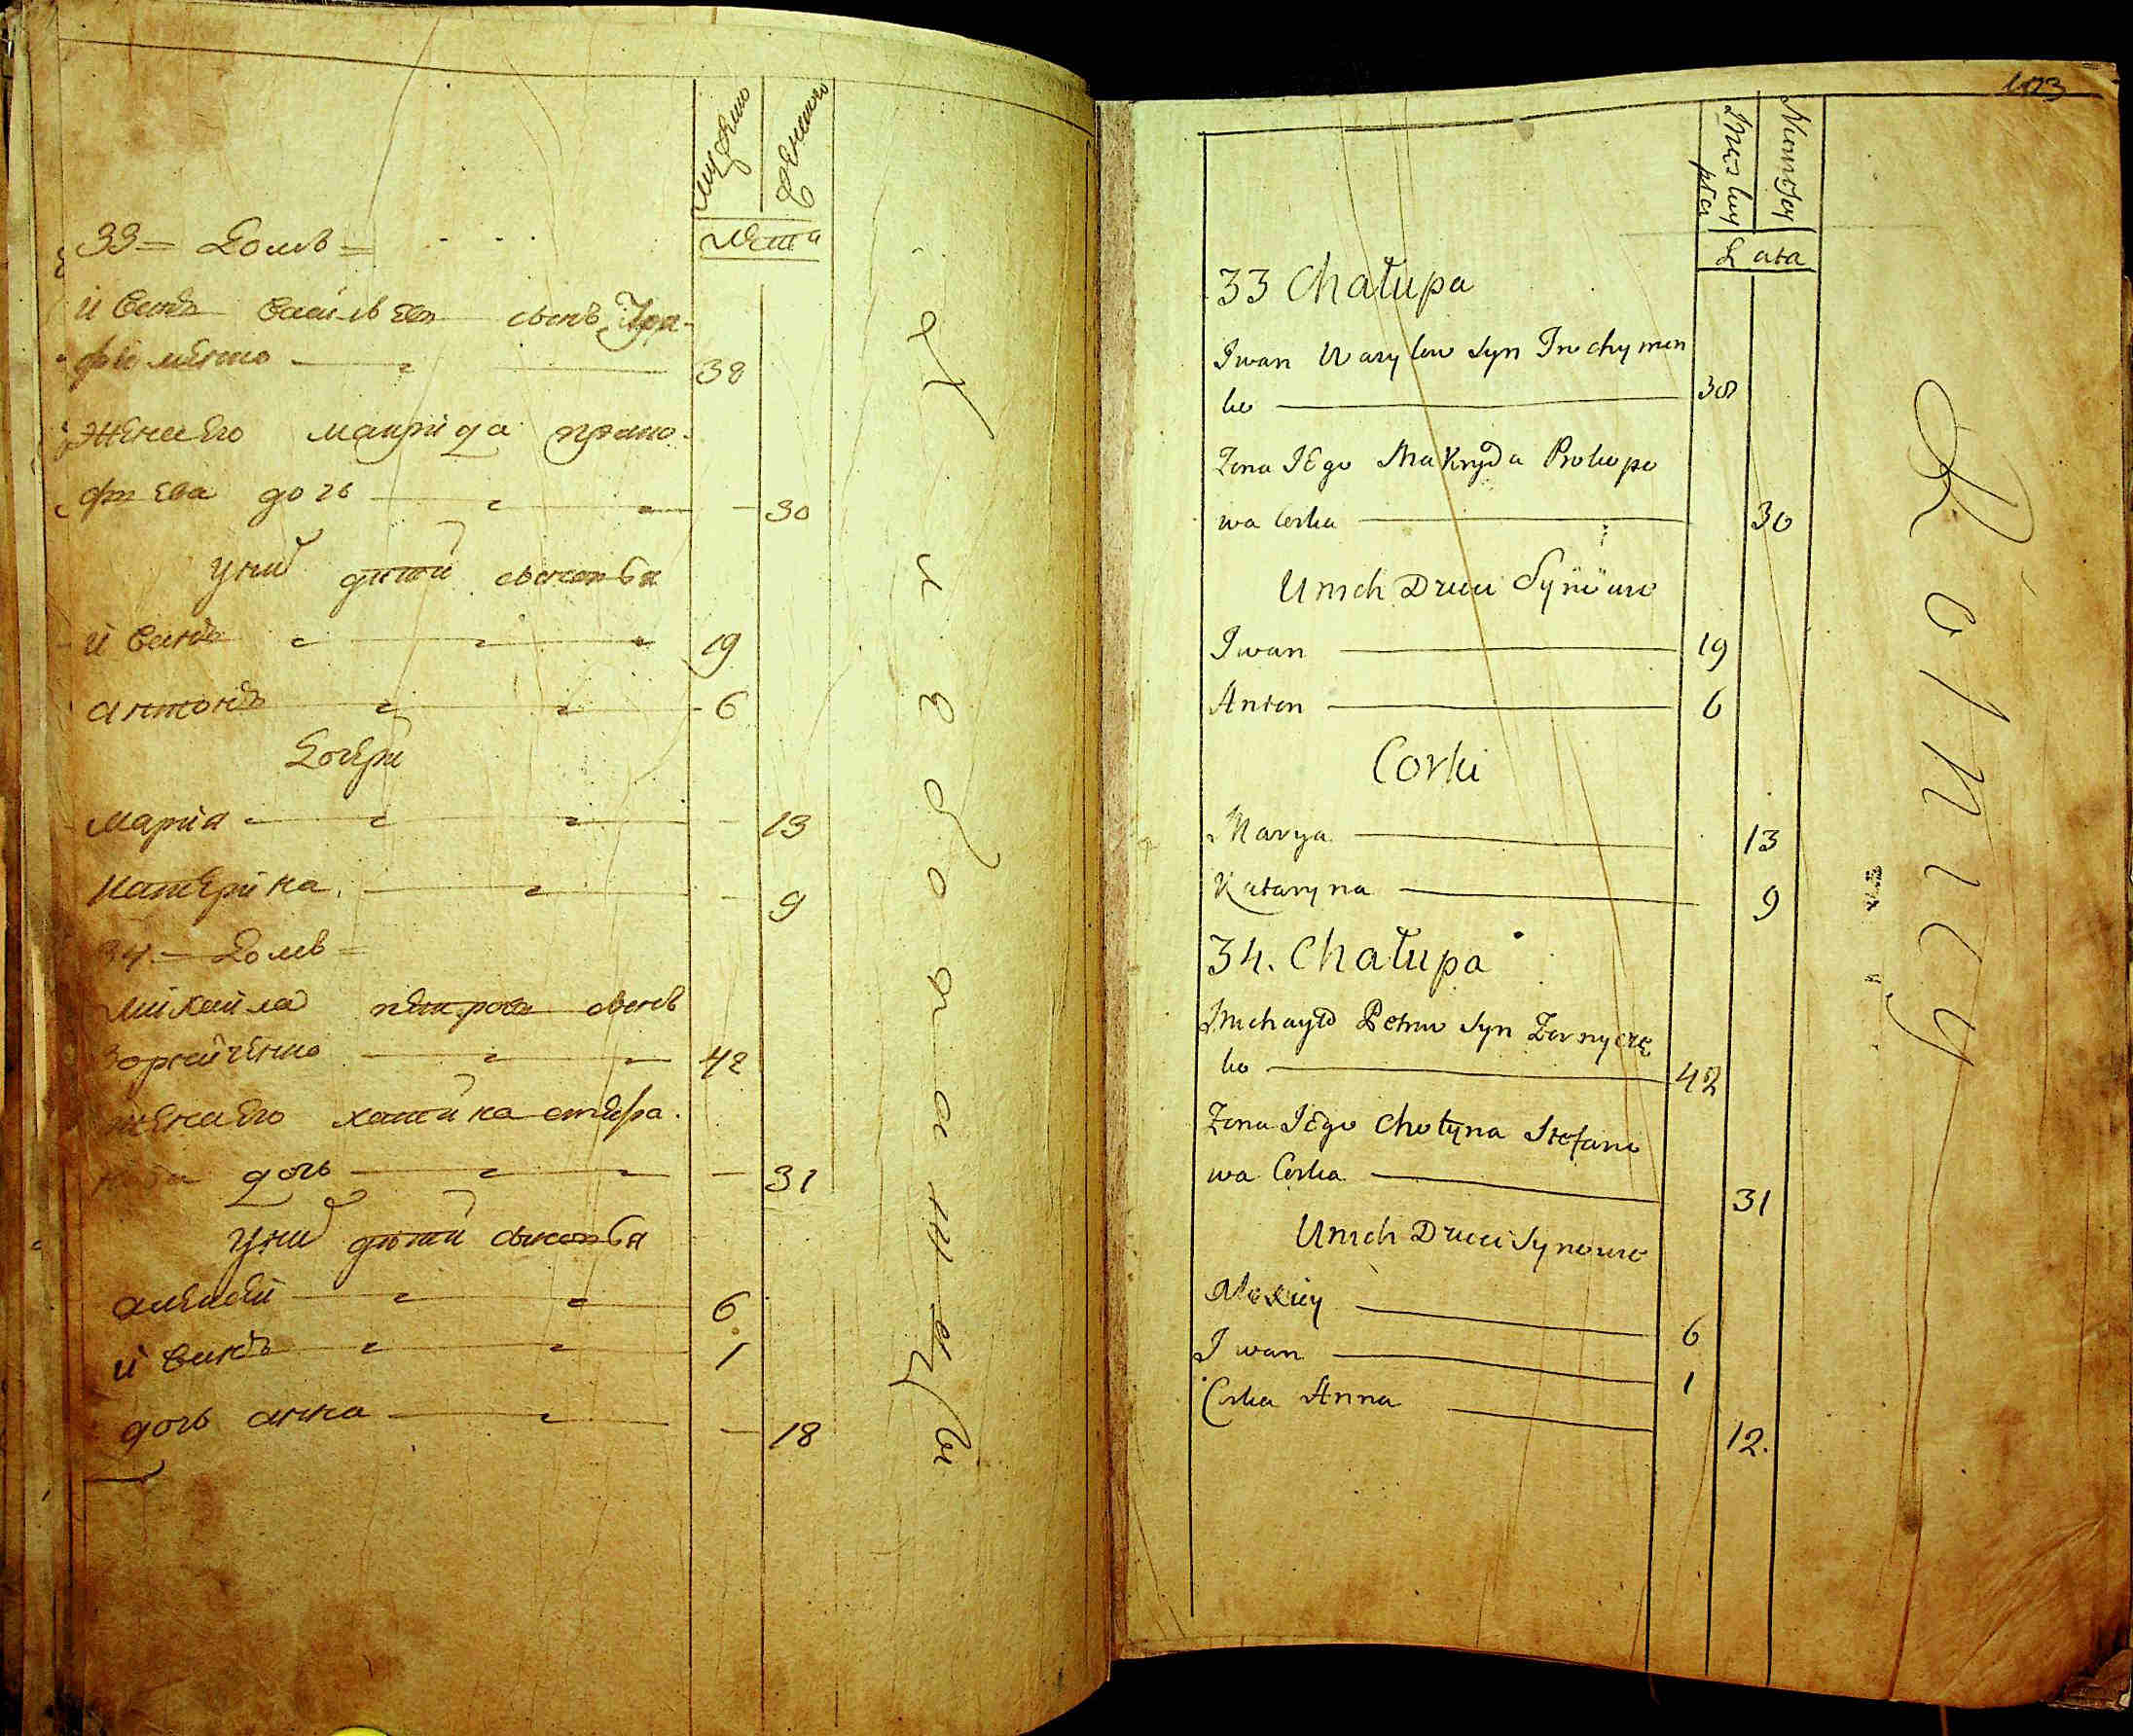 мужско
женско
лѣта
33 = Домъ =
иванъ васильевъ сынъ Тра-
фименко 38
жена Его макрида проко-
фиева дочь 30
У них дѣти сыновья
иванъ 19
антонъ 6
Дочери
мариа 13
катерина 9
34 = Домъ =
михаила петровъ сынъ
жена Его хатина стефа-
нова дочь 31
42
У них дѣти сыновья
алексей 6
иванъ 1
дочь анна 18
103
Męskey płci
Niewiesciey
Lata
33 Chałupa
Iwan Wasylow Syn Trochymen
ko 38
Żona Jego Makryda Prokopo
wa Corka 30
U nich Dzieci Synowie
Iwan 19
Anton 6
Corki
Marya 13
Kataryna 9
34. Chałupa
Michayło Petrow Syn Zornycze
ko 42
Żona Jego Chotyna Stefano
wa Corka 31
U nich Dzieci Synowie
Alexiey 6
Iwan 1
Corka Anna 12.
Rolnicy